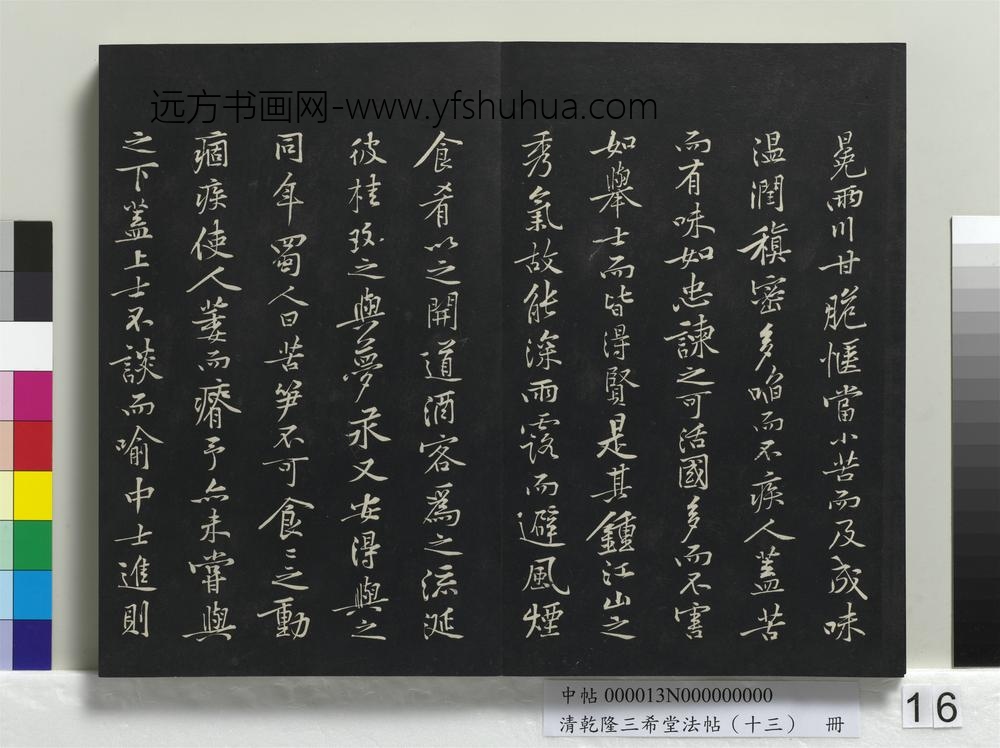 远方书画网-www.yfshuhua.com
冕兩川甘脆愜當小苦而及成味
温潤稹密多啗而不疾人蓋苦
而有味如忠諫之可活國多而不害
如舉士而皆得賢是其鍾江山之
秀氣故能深雨露而避風煙
食肴以之開道酒客爲之流涎
彼桂玫之與夢汞又安得與之
同年蜀人曰苦笋不可食〻之動
痼疾使人萎而瘠予亦未嘗與
之下蓋上士不談而喻中士進則
中帖 000013N000000000
清乾隆三希堂法帖（十三） 冊
16